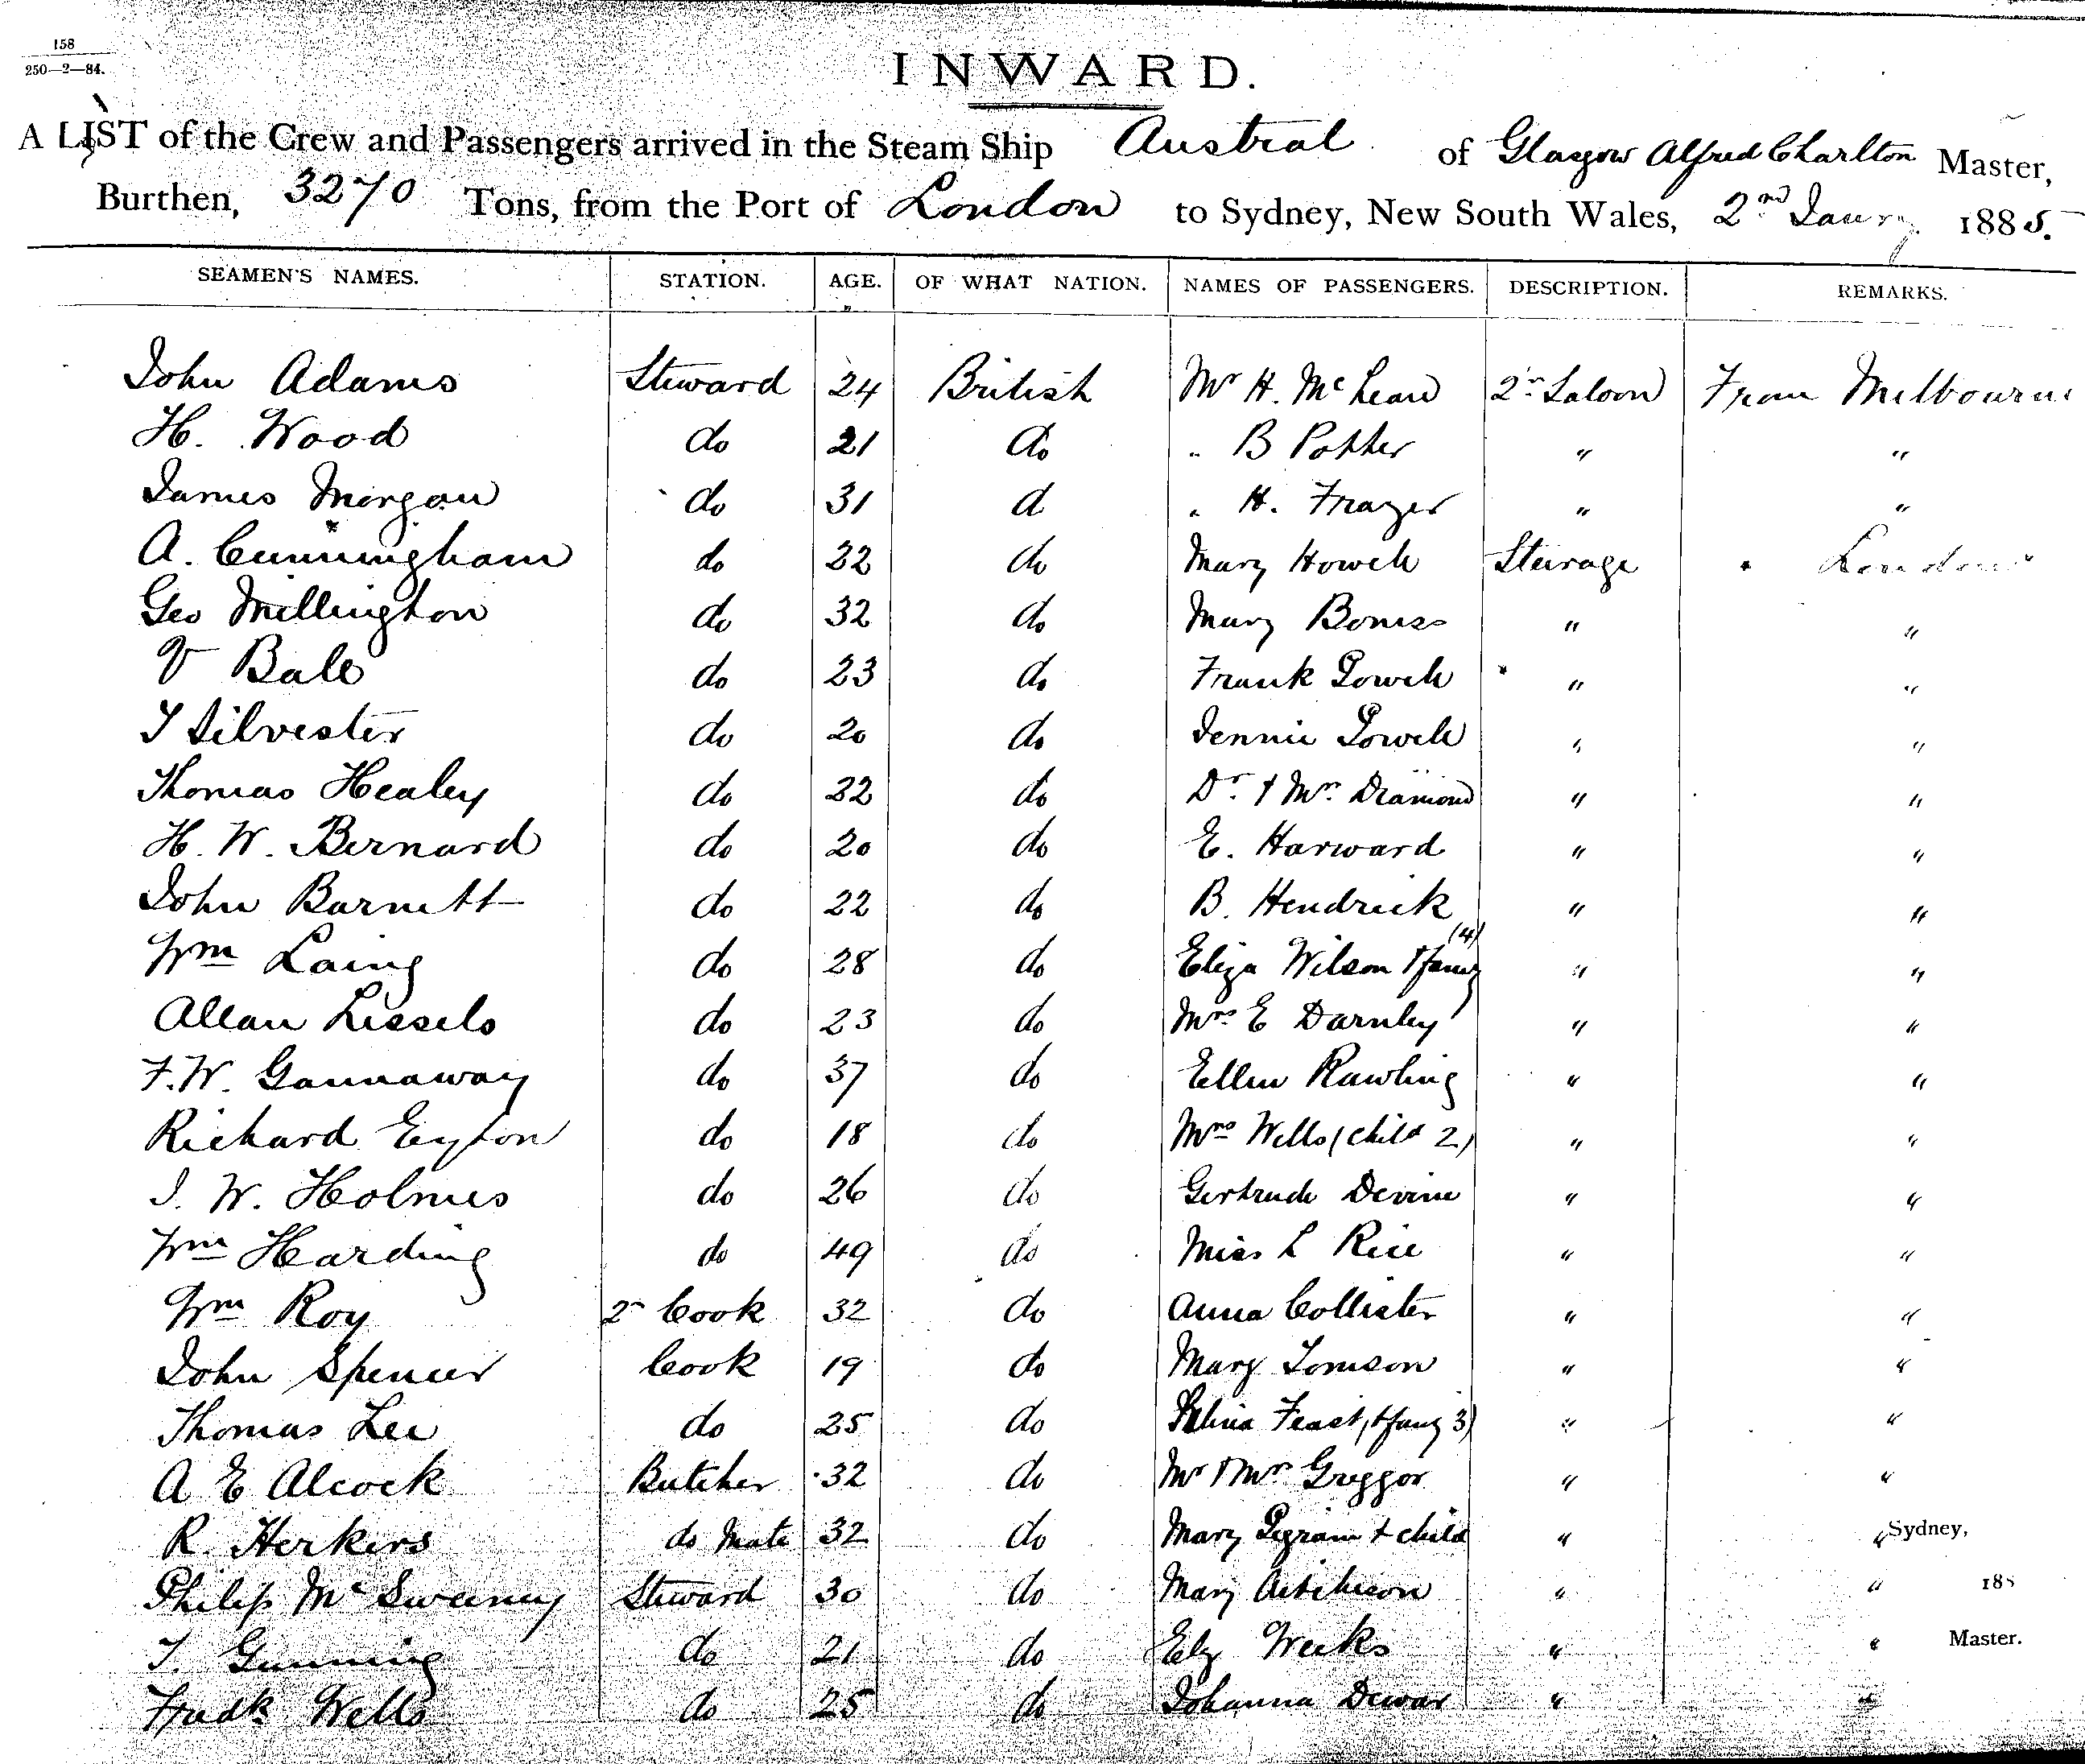 158
250—2—84.
INWARD.
A LIST of the Crew and Passengers arrived in the Steam Ship Austral of Glasgow Alfred Charlton Master,
Burthen, 3270 Tons, from the Port of London to Sydney, New South Wales, 2nd Jany 1885.
SEAMEN'S NAMES. STATION. AGE. OF WHAT NATION. NAMES OF PASSENGERS. DESCRIPTION. REMARKS.
John Adams Steward 24 British Mr H. McLean 2n Saloon From Melbourne
H. Wood do 21 do " B Potter " "
James Morgan do 31 d " H. Frazer " "
A. Cunningham do 32 do Mary Howell Steerage " London
Geo Millington do 32 do Mary " "
V Bale do 23 do Frank Powell " "
T Silvester do 20 do Jennie Powell " "
Thomas Healey do 32 do Dr. & Mrs. Diamond " "
H. W. Bernard do 20 do E. Harward " "
John Barnett do 22 do B. Hendrick " "
Wm Laing do 28 do Eliza Wilson & famy (4) " "
Allan Lessels do 23 do Mrs E Darnley " "
F. W. Gannaway do 37 do Ellen Rawling " "
Richard Eyton do 18 do Mrs Wells (child 2) " "
J. W. Holmes do 26 do Gertrude Devine " "
Wm Harding do 49 do Miss L Rice " "
Wm Roy 2n Cook 32 do Anna Collister " "
John Spencer Cook 19 do Mary Tomson " "
Thomas Lee do 25 do Feast, & famy 3) " "
A E Alcock Butcher 32 do Mr & Mrs Greggor " "
R. Herkers do Mate 32 do Mary Pegram & child " " Sydney,
Philip McSweeney Steward 30 do Mary Aitchison " " 188
T. Gunning do 21 do Elz Weeks " " Master.
Fredk Wells do 25 do Johanna Dewar " "